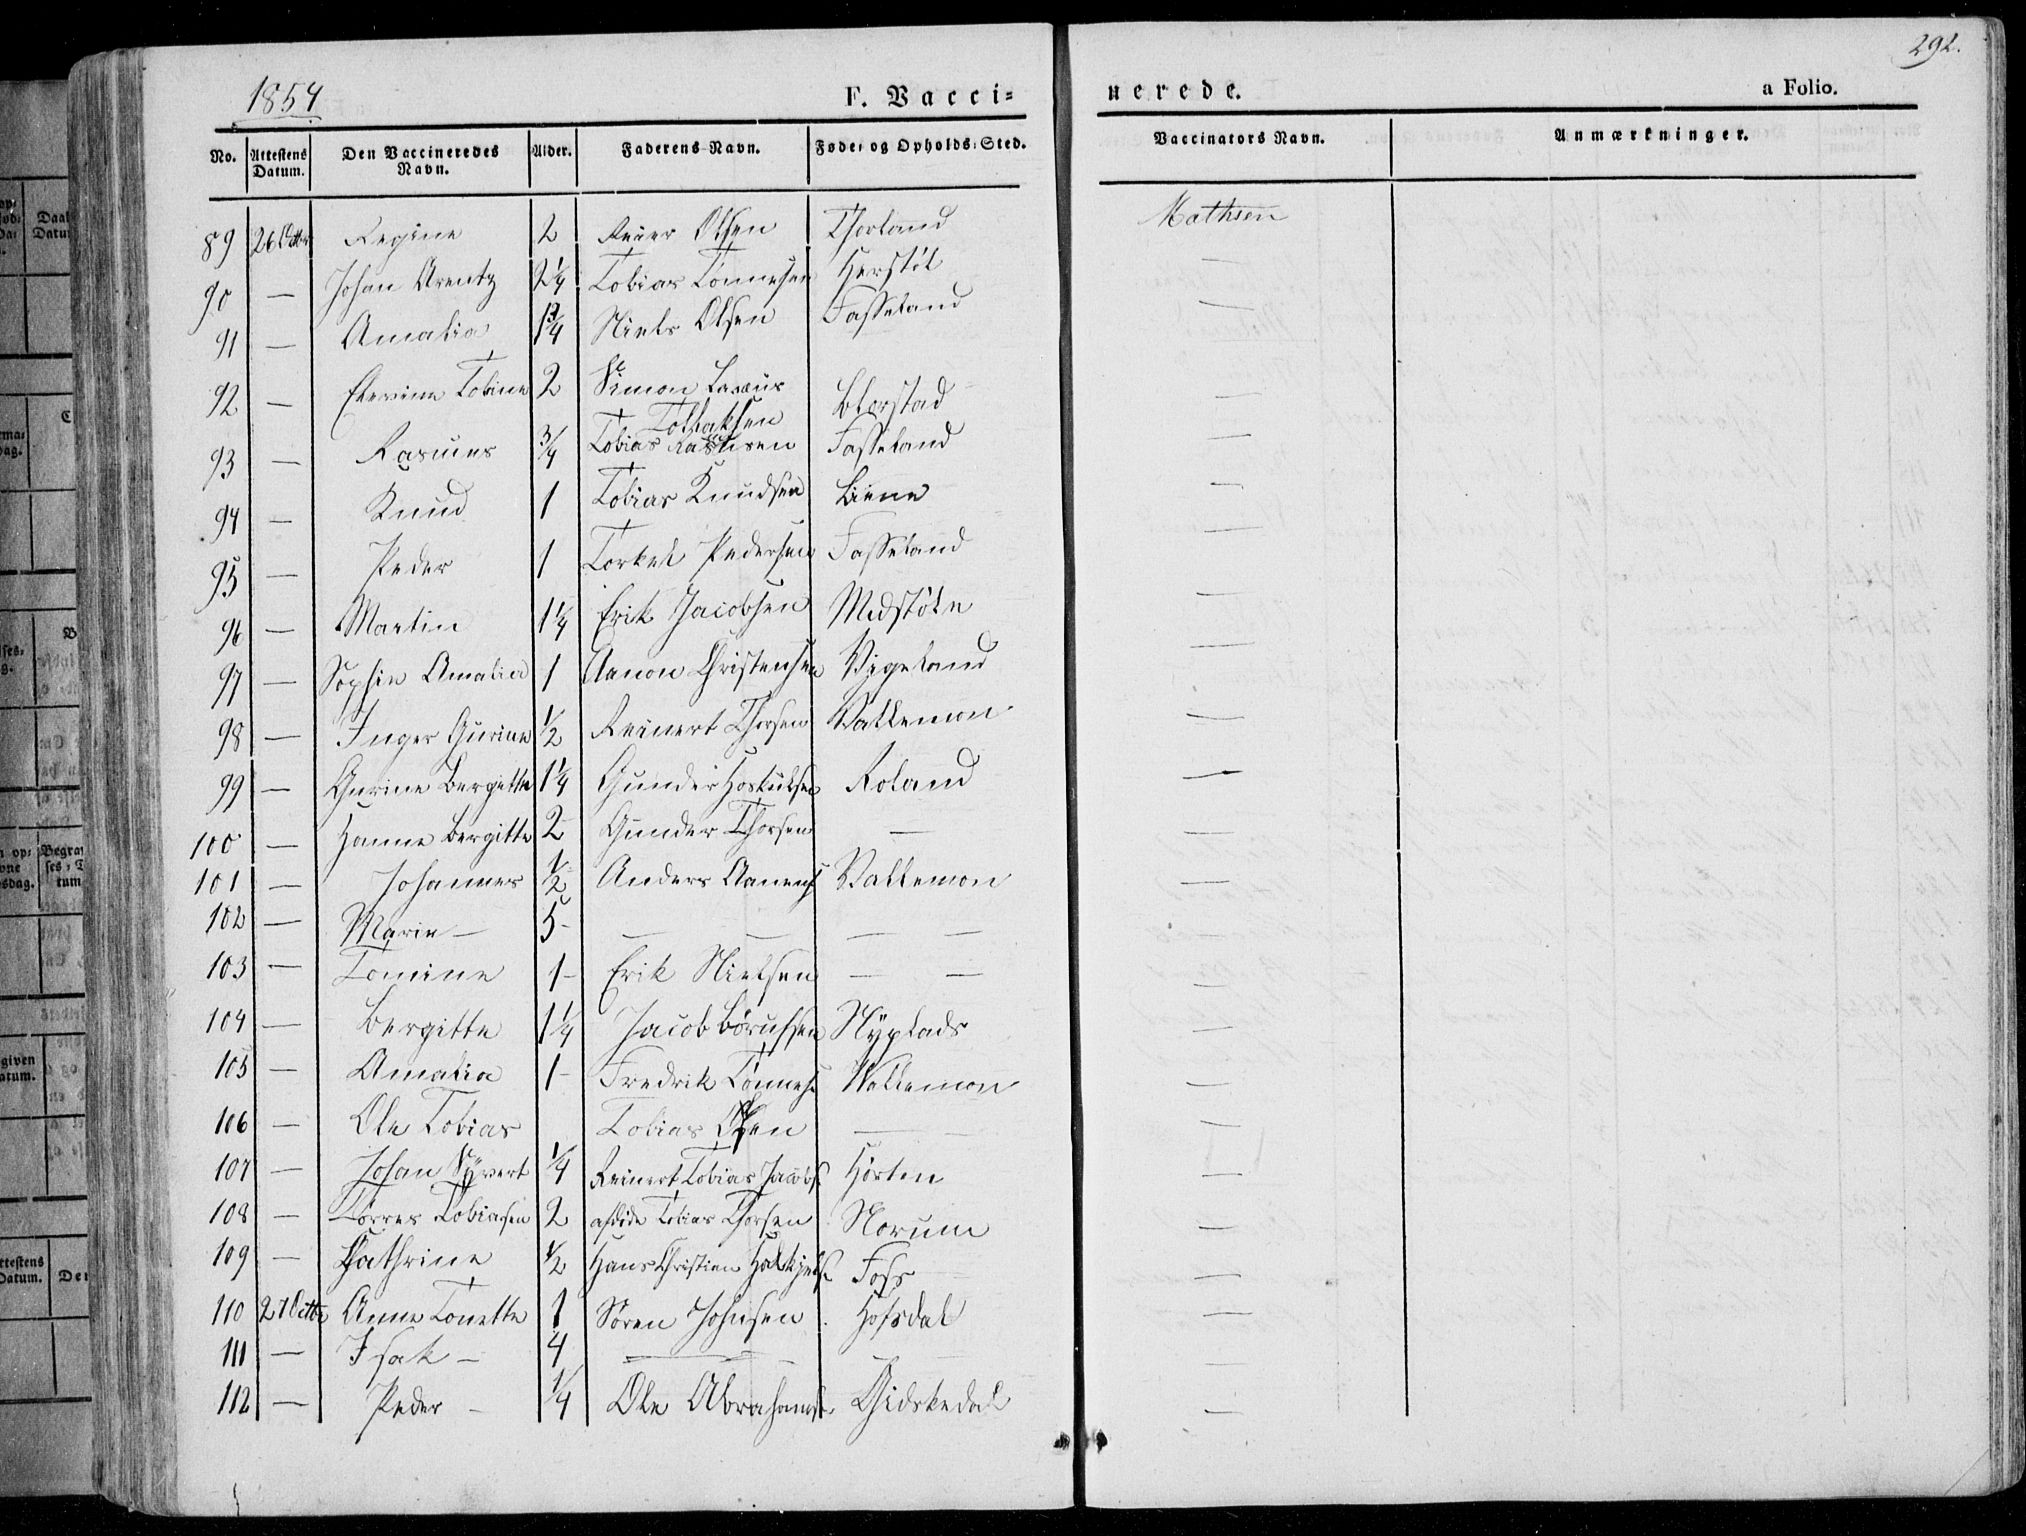 292.
1854 F. Vacci= nerede. a Folio.
No. Attestens Datum. Den Vaccineredes Navn. Alder. Faderens Navn. Føde= og Opholds=Sted. Vaccinators Navn. Anmærkninger.
89 26 Regine 2 Reier Olsen Thorland Mathsen
90 — Johan Arentz 2¼ Tobias Tønnesen Herstøl —
91 — Amalia 1¾ Niels Olsen Fasseland —
92 — Elevine Tobine 2 Simon
Tollaksen Blørstad
93 — Rasmus ¾ Tobias Fasseland —
94 — Knud 1 Tobias Knudsen Liene —
95 — Peder 1 Torkel Pedersen Fasseland —
96 — Martin 1¼ Erik Jacobsen Midstøle —
97 — Sophie Amalia 1 Aanon Christensen Vigeland —
98 — Inger Gurine ½ Reinert Thorsen Vallemon —
99 — Gurine Bergitte 1¼ Gunder Roland —
100 — Hanne Bergitte 2 Gunder Thorsen — —
101 — Johannes ½ Anders Aanens Vallemon —
102 — Marie — 5 — — — — — —
103 — Tomine 1 — Erik Nielsen — — —
104 — Bergitte 1¼ Jacob Børufsen Nyplads —
105 — Amalia 1 — Fredrik Tønnes. Vallemon —
106 — Ole Tobias Tobias Olsen — —
107 — Johan Syvert ¼ Reinert Tobias Jacobs. Hørten —
108 — Tørres Tobiasen 2 afdøde Tobias Thorsen Norum —
109 — Cathrine ½ Hans Christian Foss —
110 27 Anne Tonette 1 Søren Johnsen Hofsdal —
111 — Isak — 4 — — —
112 — Peder — ¼ Ole Abrahams. Gidskedal —